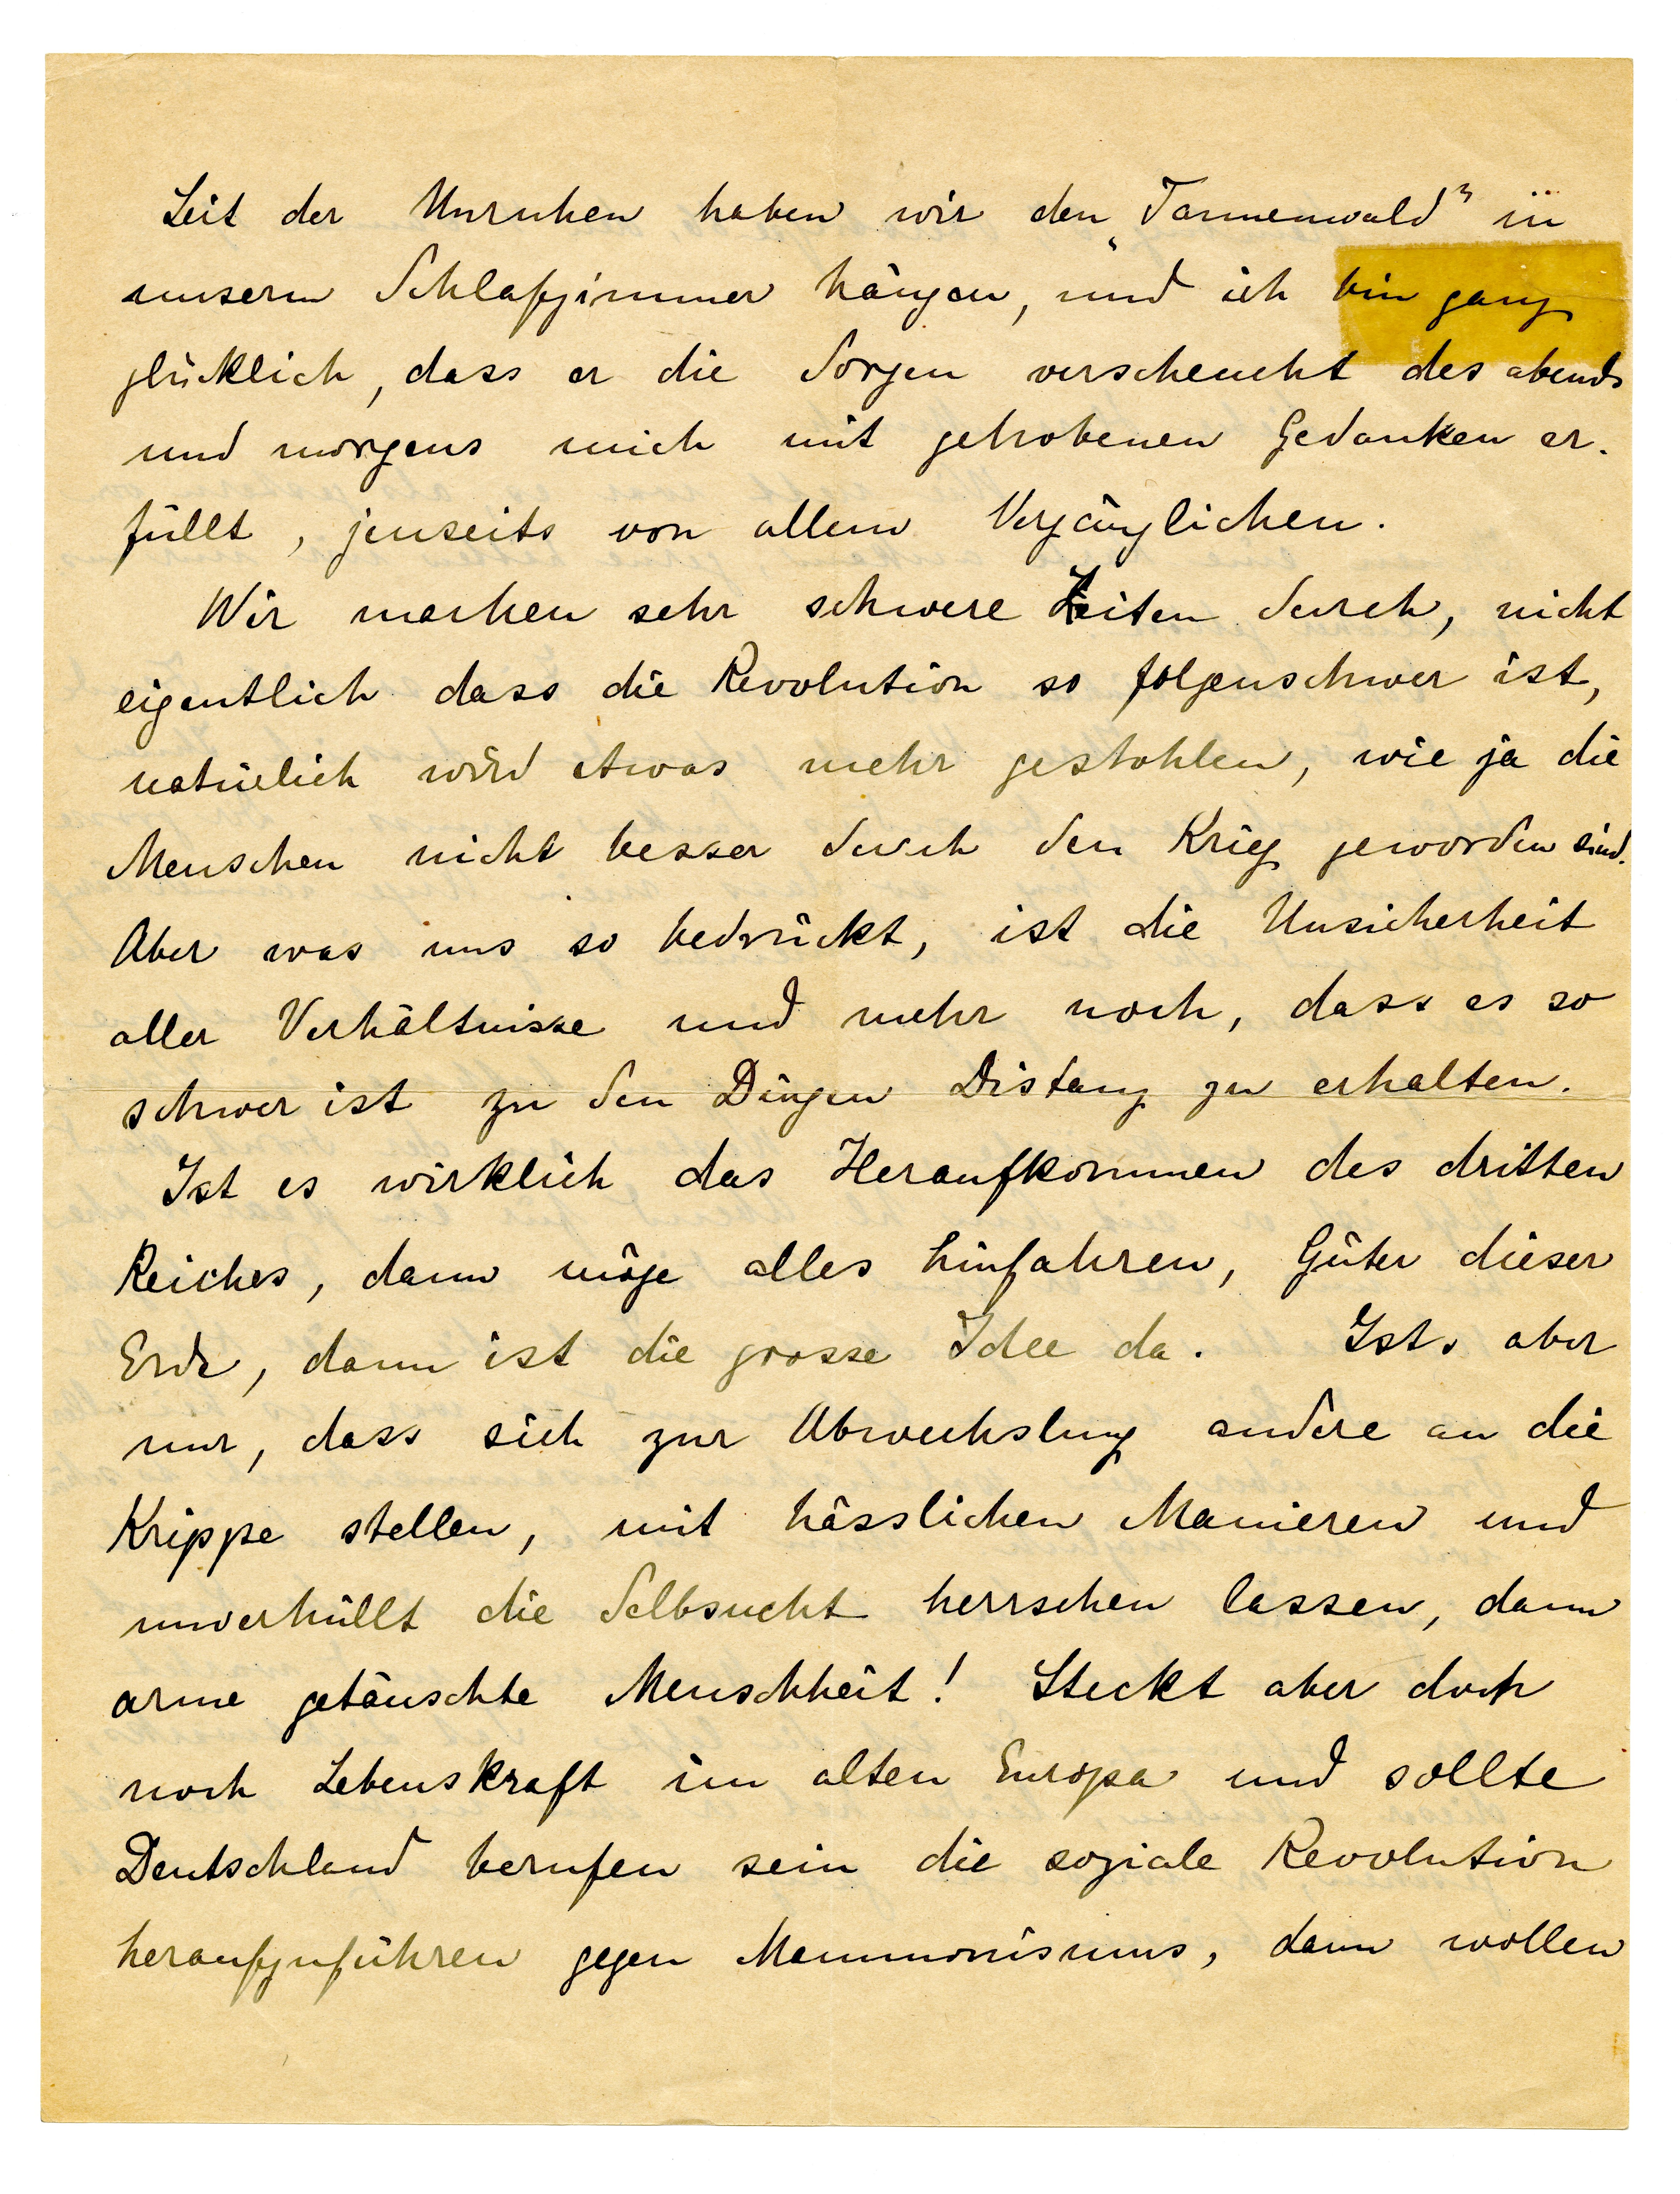 Seit der Unruhen haben wir den „Tannenwald" in
unserm Schlafzimmer hängen, und ich bin ganz
glücklich, dass er die Sorgen verscheucht des abends
und morgens mich mit gehobenen Gedanken er-
füllt, jenseits von allem Vergänglichen.
Wir machen sehr schwere Zeiten durch, nicht
eigentlich dass die Revolution so folgenschwer ist,
natürlich wird etwas mehr gestohlen, wie ja die
Menschen nicht besser durch den Krieg geworden sind.
Aber was uns so bedrückt, ist die Unsicherheit
aller Verhältnisse und mehr noch, dass es so
schwer ist zu den Dingen Distanz zu erhalten.
Ist es wirklich das Heraufkommen des dritten
Reiches, dann möge alles hinfahren, Güter dieser
Erde, dann ist die grosse Idee da. Ists aber
nur, dass sich zur Abwechslung andere an die
Krippe stellen, mit hässlichen Manieren und
unverhüllt die Selbsucht herrschen lassen, dann
arme getäuschte Menschheit! Steckt aber doch
noch Lebenskraft im alten Europa und sollte
Deutschland berufen sein die soziale Revolution
heraufzuführen gegen Mammonismus, dann wollen